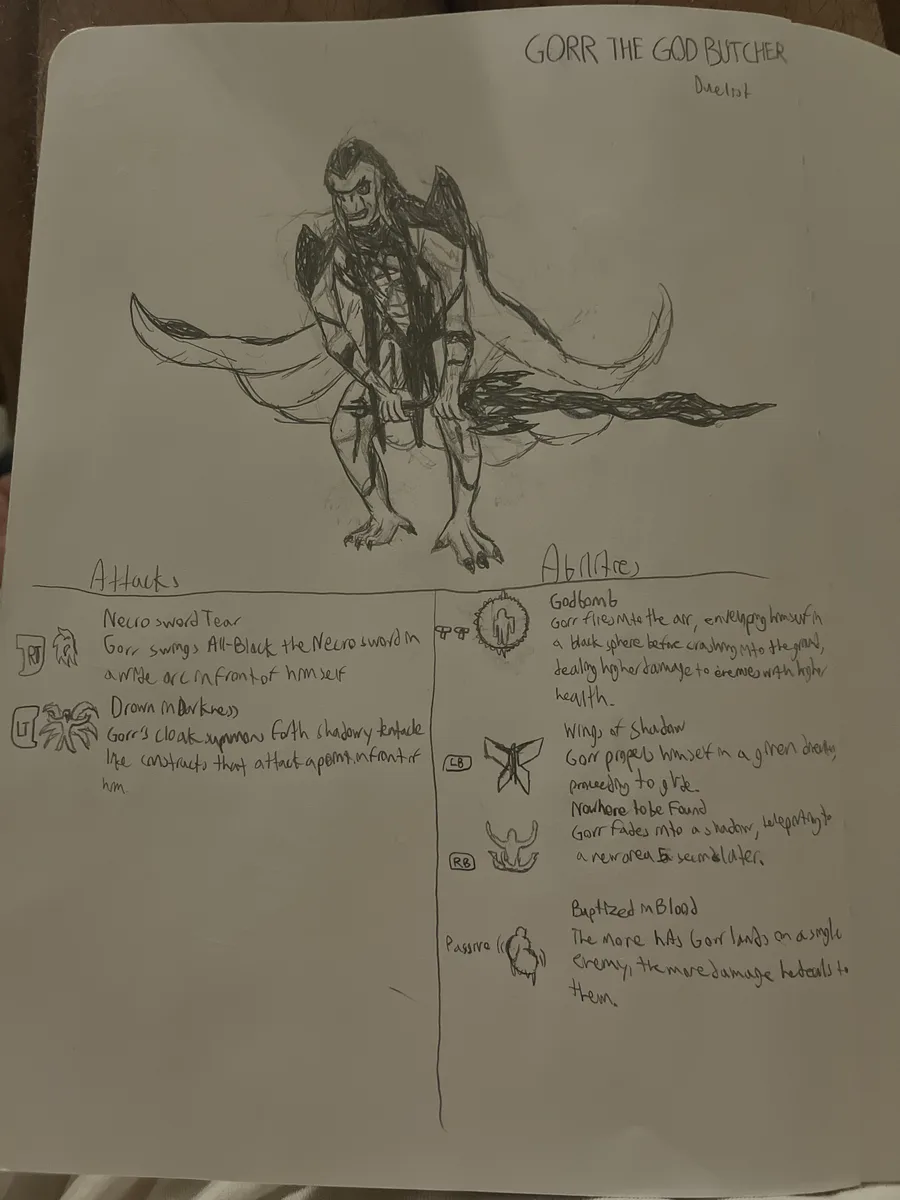 GORR THE GOD BUTCHER
Duelist
Attacks
RT
Necro sword Tear
Gorr swings All-Black the Necro sword in
a wide arc in front of himself
LT
Drown in Darkness
Gorr's cloak summons forth shadowy tentacle
like constructs that attack a point in front of
him
Abilities
Godbomb
Gorr flies into the air, enveloping himself in
a black sphere before crashing into the ground,
dealing higher damage to enemies with higher
health.
LB
Wings of Shadow
Gorr propels himself in a given direction,
proceeding to glide.
RB
Nowhere to be Found
Gorr fades into a shadow, teleporting to
a new area 5 seconds later.
Passive
Baptized in Blood
The more hits Gorr lands on a single
enemy, the more damage he deals to
them.